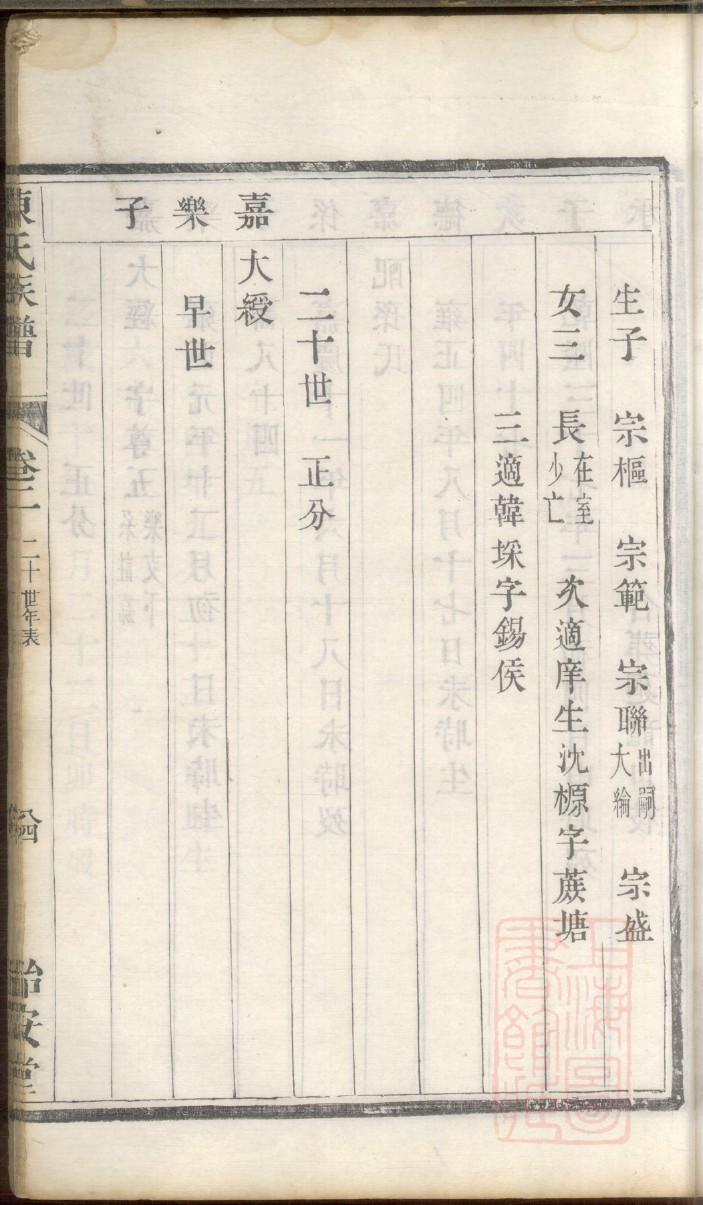 生子 宗樞 宗範 宗聯出嗣大綸 宗盛
女三 長在室少亡 次適庠生沈榞字蔗塘
三適韓埰字錫侯
二十世 正分
嘉樂子
大綬
早世
陳氏族譜 卷二 二十世年表 怡安堂
上海圖書館藏